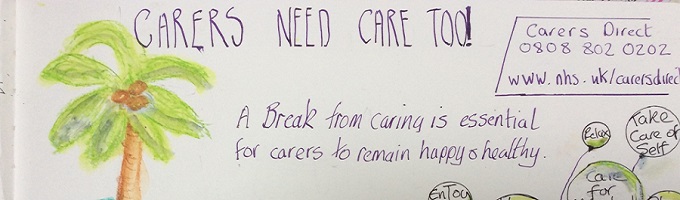 CARERS NEED CARE TOO!
Carers Direct
0808 802 0202
www.nhs.uk/carersdirect
A Break from caring is essential
for carers to remain happy & healthy.
Relax
Take
Care of
Self
Care
for
Enjoy